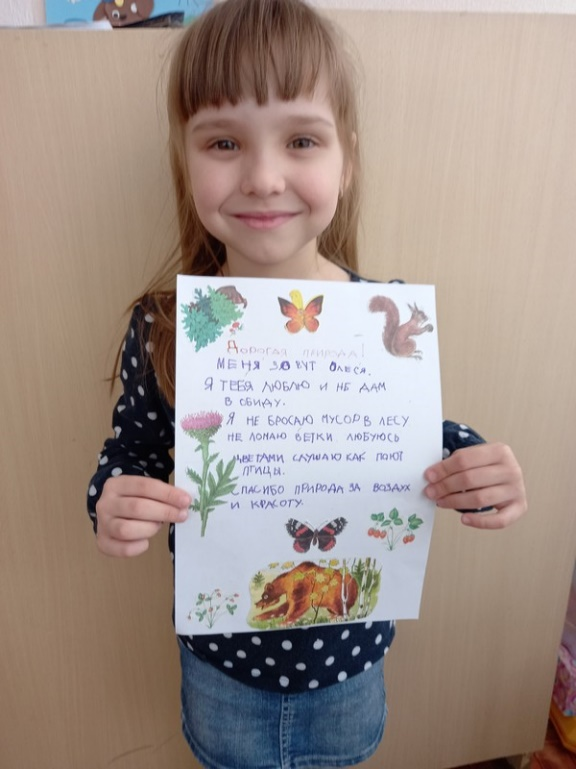 Дорогая природа!
МЕНЯ ЗОВУТ ОЛЕСЯ.
Я ТЕБЯ ЛЮБЛЮ И НЕ ДАМ
В ОБИДУ.
Я НЕ БРОСАЮ МУСОР В ЛЕСУ
НЕ ЛОМАЮ ВЕТКИ. ЛЮБУЮСЬ
ЦВЕТАМИ, СЛУШАЮ КАК ПОЮТ
ПТИЦЫ.
СПАСИБО ПРИРОДА ЗА ВОЗДУХ
И КРАСОТУ.